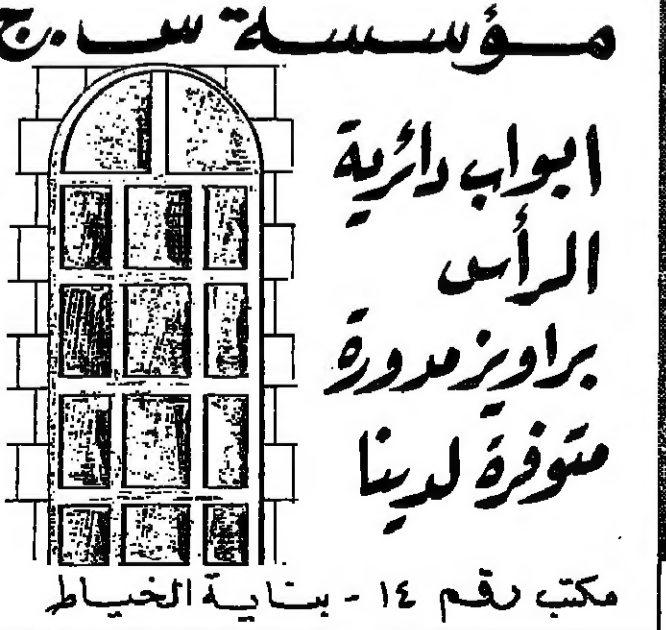 مؤسسة س.ج
ابواب دائرية
الرأس
براويز مدورة
متوفرة لدينا
مكتب رقم ١٤ - بناية الخياط